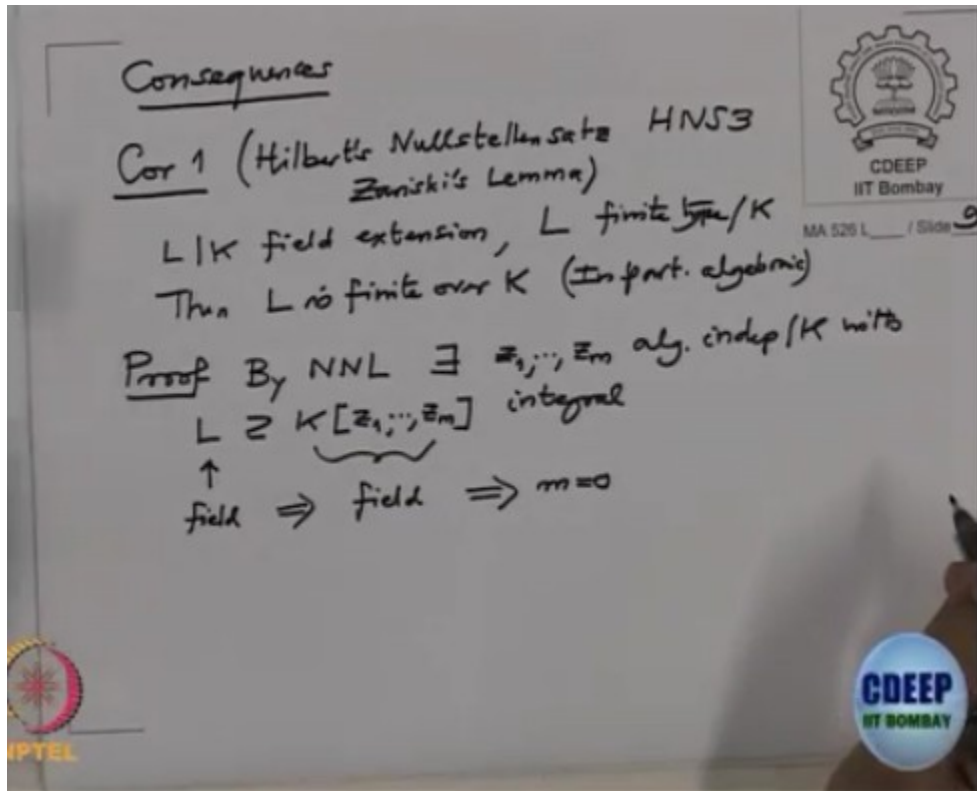 Consequences
Cor 1 (Hilbert's Nullstellensatz HNS3
Zariski's Lemma)
L|K field extension, L finite type/K
Then L is finite over K (In part. algebraic)
Proof By NNL ∃ z₁,…,zₘ alg. indep/K with
L ⊇ K[z₁,…,zₘ] integral
↑
field ⇒ field ⇒ m=0
CDEEP
IIT Bombay
MA 526 L___ / Slide 9
NPTEL
CDEEP
IIT BOMBAY